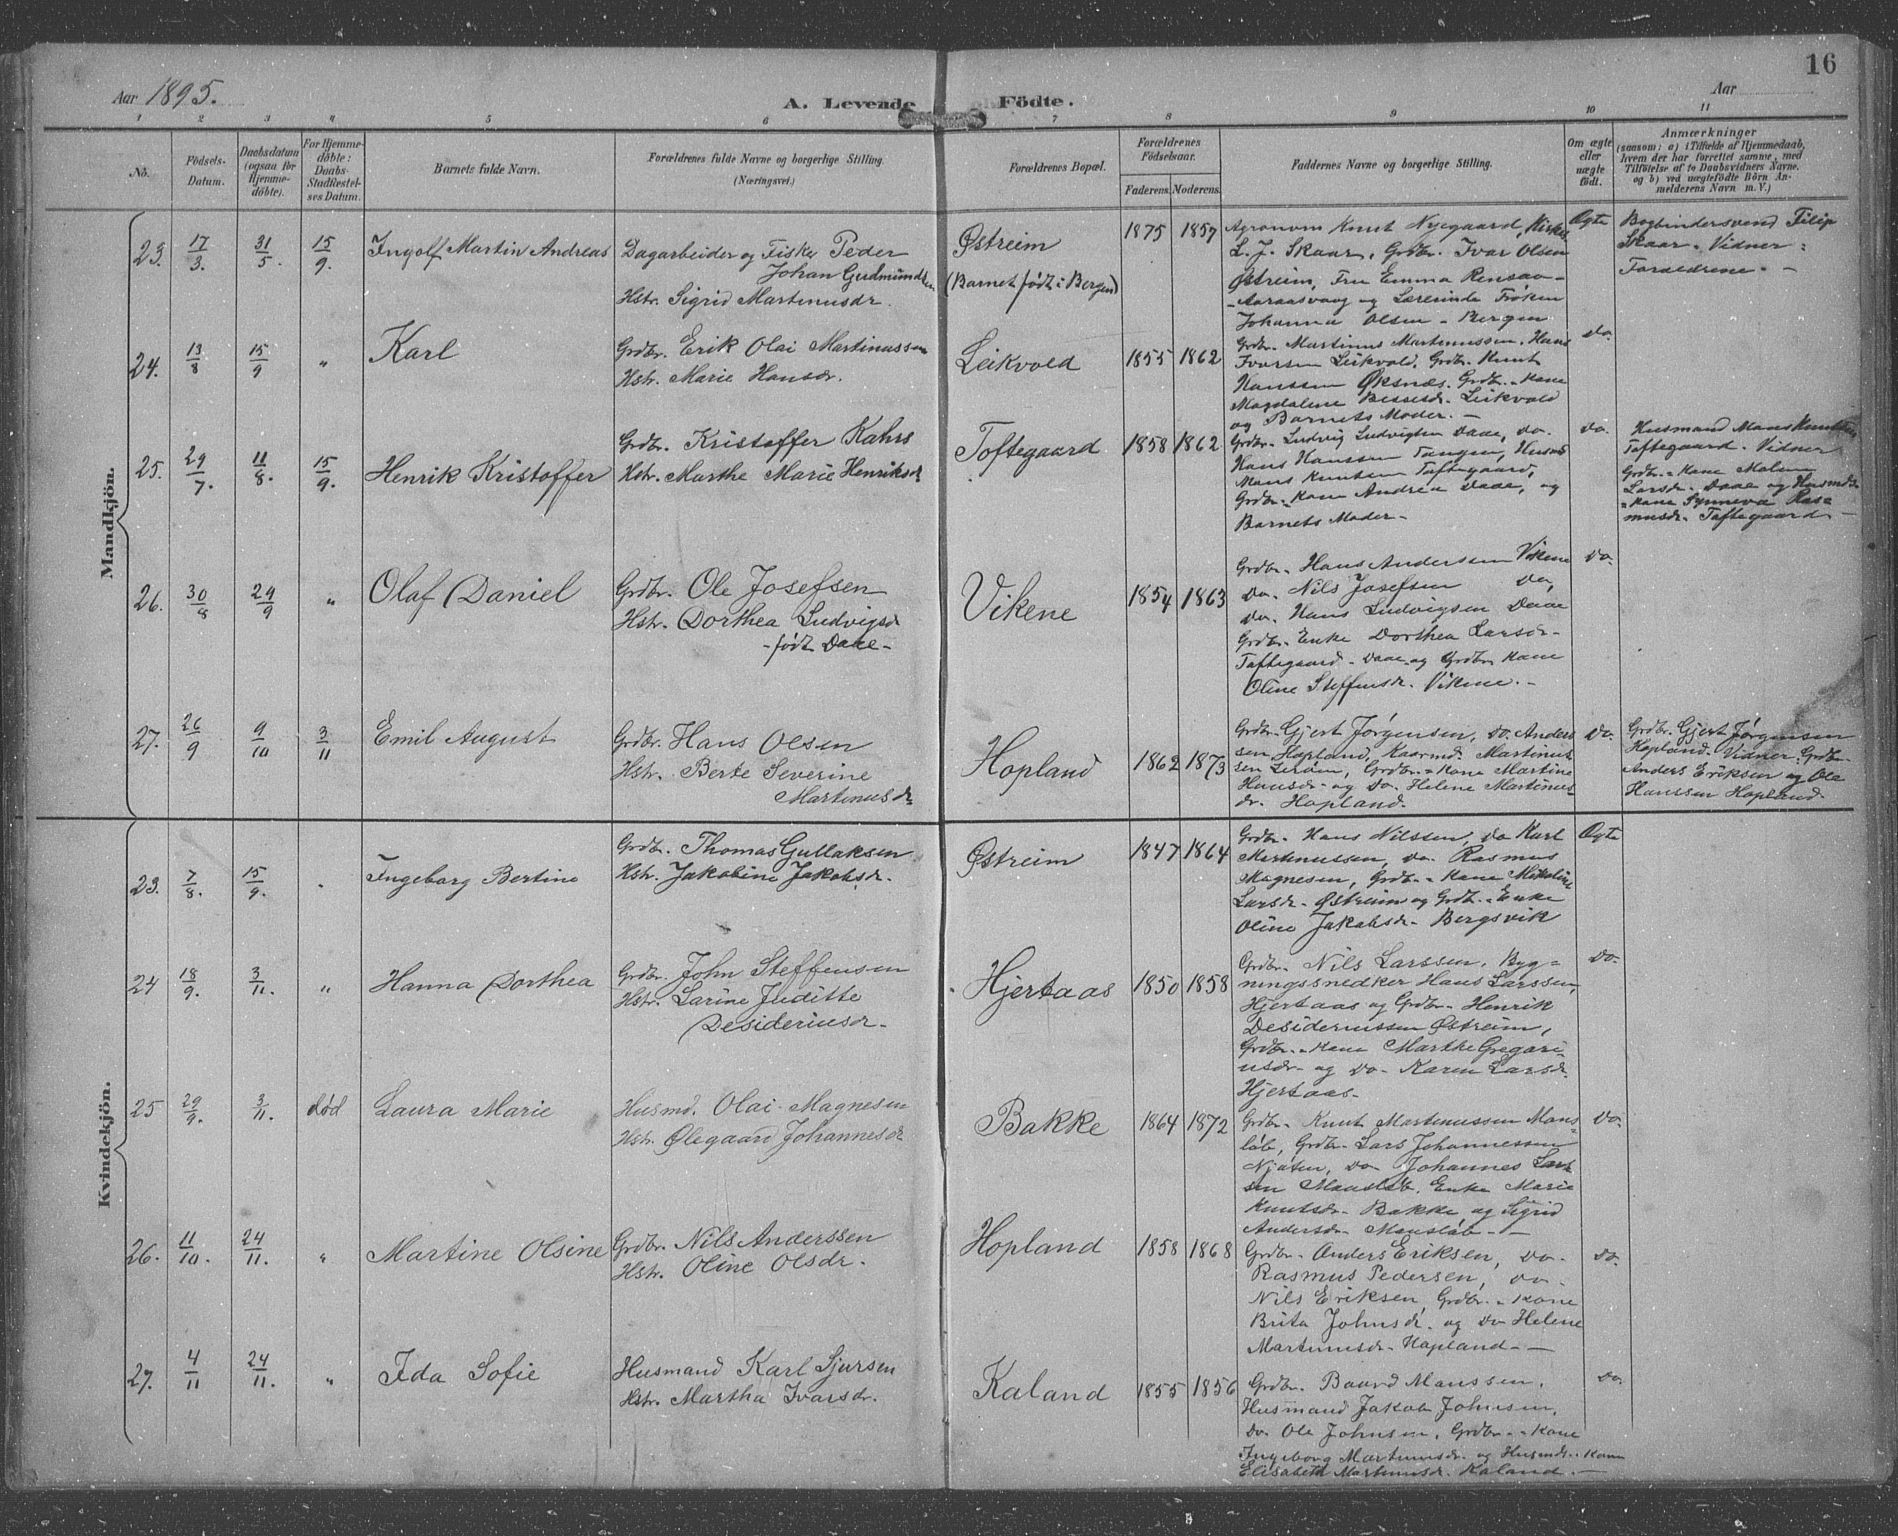 16
Aar 1895.
A. Levende Födte.
Aar
1 2 3 4 5 6 7 8 9 10 11
No.
Födsels-
Datum.
Daabsdatum
(ogsaa for
Hjemme-
döbte).
For Hjemme-
döbte:
Daabs-
Stadfæstel-
ses Datum.
Barnets fulde Navn.
Forældrenes fulde Navne og borgerlige Stilling.
(Næringsvei.)
Forældrenes Bopæl.
Forældrenes
Födselsaar.
Faderens. Moderens.
Faddernes Navne og borgerlige Stilling.
Om ægte
eller
uægte
født.
Anmærkninger
(saasom: a) i Tilfælde af Hjemmedaab,
hvem der har forrettet samme, med
Tilföielse af to Daabsvidners Navne.
og b) ved uægtefödte Börn An-
melderens Navn m. V.)
Mandkjön.
23. 17/3. 31/5. 15/9. Ingolf Martin Andreas
Dagarbeider og Fisker Peder
Johan Gudmundsen
Hstr. Sigrid Martinusdr.
Østreim
(Barnet født i Bergen)
1875 1857
Agronom Knut Nyegaard, Kirkes.
L. J. Skaar, Grdbr. Ivar Olsen
Østreim, Fru Emma Rensaa-
-Aaraasvaag og Lærerinde Frøken
Johanna Olsen - Bergen
Ægte
Bogbindersvend Filip
Skaar. Vidner:
Forældrene. -
24. 13/8 15/9 " Karl
Grdbr. Erik Olai Martinussen
Hstr. Marie Hansdr.
Leikvold
1855 1862
Grdbr. Martinus Martinussen, Hans
Ivarsen Leikvold, Grdbr. Knut
Hanssen Øksnæs. Grdbr.-Kone
Magdalene Bessesdr. Leikvold
og Barnets Moder. -
do.
25. 29/7. 11/8. 15/9. Henrik Kristoffer
Grdbr. Kristoffer Kahrs
Hstr. Marthe Marie Henriksdr
Toftegaard
1858 1862
Grdbr. Ludvig Ludvigsen Daae, do.
Hans Hanssen Tangen, Husmd
Mans Knutsen Taftegaard,
Grdbr.-Kone Andrea Daae, og
Barnets Moder -
do.
Husmand Mans Knutsen
Taftegaard. Vidner
Grdbr.-Kone Malene
Larsdr. Daae og Husmds
-Kone Synneva Ras-
musdr. Taftegaard -
26. 30/8 29/9 " Olaf Daniel
Grdbr. Ole Josefsen
Hstr. Dorthea Ludvigsdr
- født Daae -
Vikene
1854 1863
Grdbr. Hans Anderssen Vikene
do. Nils Josefsen do,
do. Hans Ludvigsen Daae
Grdbr. Enke Dorthea Larsdr.
Taftegaard - Daae og Grdbr. Kone
Oline Steffensdr. Vikene. -
do.
27. 26/9 9/10 3/11 Emil August
Grdbr. Hans Olsen
Hstr. Berte Severine
Martinusdr
Hopland
1862 1873
Grdbr. Gjert Jørgensen, do. Anders
sen Hopland, Kaarmd. Martinus-
sen Lerøim, Grdbr.-Kone Martine
Hansdr. og do. Helene Martinus-
dr. Hopland.
do.
Grdbr. Gjert Jørgensen
Hopland. Vidner: Grdbr.
Anders Eriksen og Ole
Hanssen Hopland.
Kvindekjön.
23. 7/8. 15/9. Ingeborg Bertine
Grdbr. Thomas Gullaksen
Hstr. Jakobine Jakobsdr.
Østreim
1847 1864
Grdbr. Hans Nilssen, do Karl
Martinussen, do. Rasmus
Magnesen, Grdbr.-Kone Mikkeline
Larsdr. Østreim og Grdbr.-Enke
Oline Jakobsdr. Bergsvik
Ægte
24 18/9. 3/11. " Hanna Dorthea
Grdbr. John Steffensen
Hstr. Larine Juditte
Desideriusdr.
Hjertaas
1850 1858
Grdbr. Nils Larssen, Byg-
ningssnedker Hans Larssen,
Hjertaas og Grdbr. Henrik
Desideriussen Østreim,
Grdbr.-Kone Marthe Gregori-
usdr. og do. Karen Larsdr.
Hjertaas.
do.
25 29/9. 3/11. død Laura Marie
Husmd. Olai Magnesen
Hstr. Olegaard Johannesdr
Bakke
1864 1872
Grdbr. Knut Martinussen Mans-
løb, Grdbr. Lars Johannessen
Njøten, do Johannes Lars-
sen Mansløb, Enke Marie
Knutsdr. Bakke og Sigrid
Andersdr. Mansløb. -
do.
26. 11/10. 24/11. " Martine Olsine
Grdbr. Nils Anderssen
Hstr. Oline Olsdr.
Hopland
1858 1868
Grdbr. Anders Eriksen, do.
Rasmus Pedersen, do.
Nils Eriksen, Grdbr.-Kone
Brita Johnsdr. og do Helene
Martinusdr. Hopland. -
do.
27. 4/11 24/11. " Ida Sofie
Husmand Karl Sjursen
Hstr. Martha Ivarsdr.
Kaland
1855 1856
Grdbr. Baard Manssen,
Husmand Jakob Johnsen,
do. Ole Johnsen, Grdbr.-Kone
Ingeborg Martinusdr. og Husmds.-Kone
Elisabeth Martinusdr. Kaland. -
do.